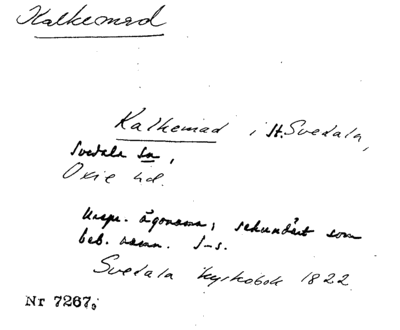 Kalkemad
Kalkemad i St. Svedala,
Svedala sn,
Oxie hd.
Urspr. ägonamn, sekundärt som
beb. namn. I-s.
Svedala kyrkobok 1822
Nr 7267.